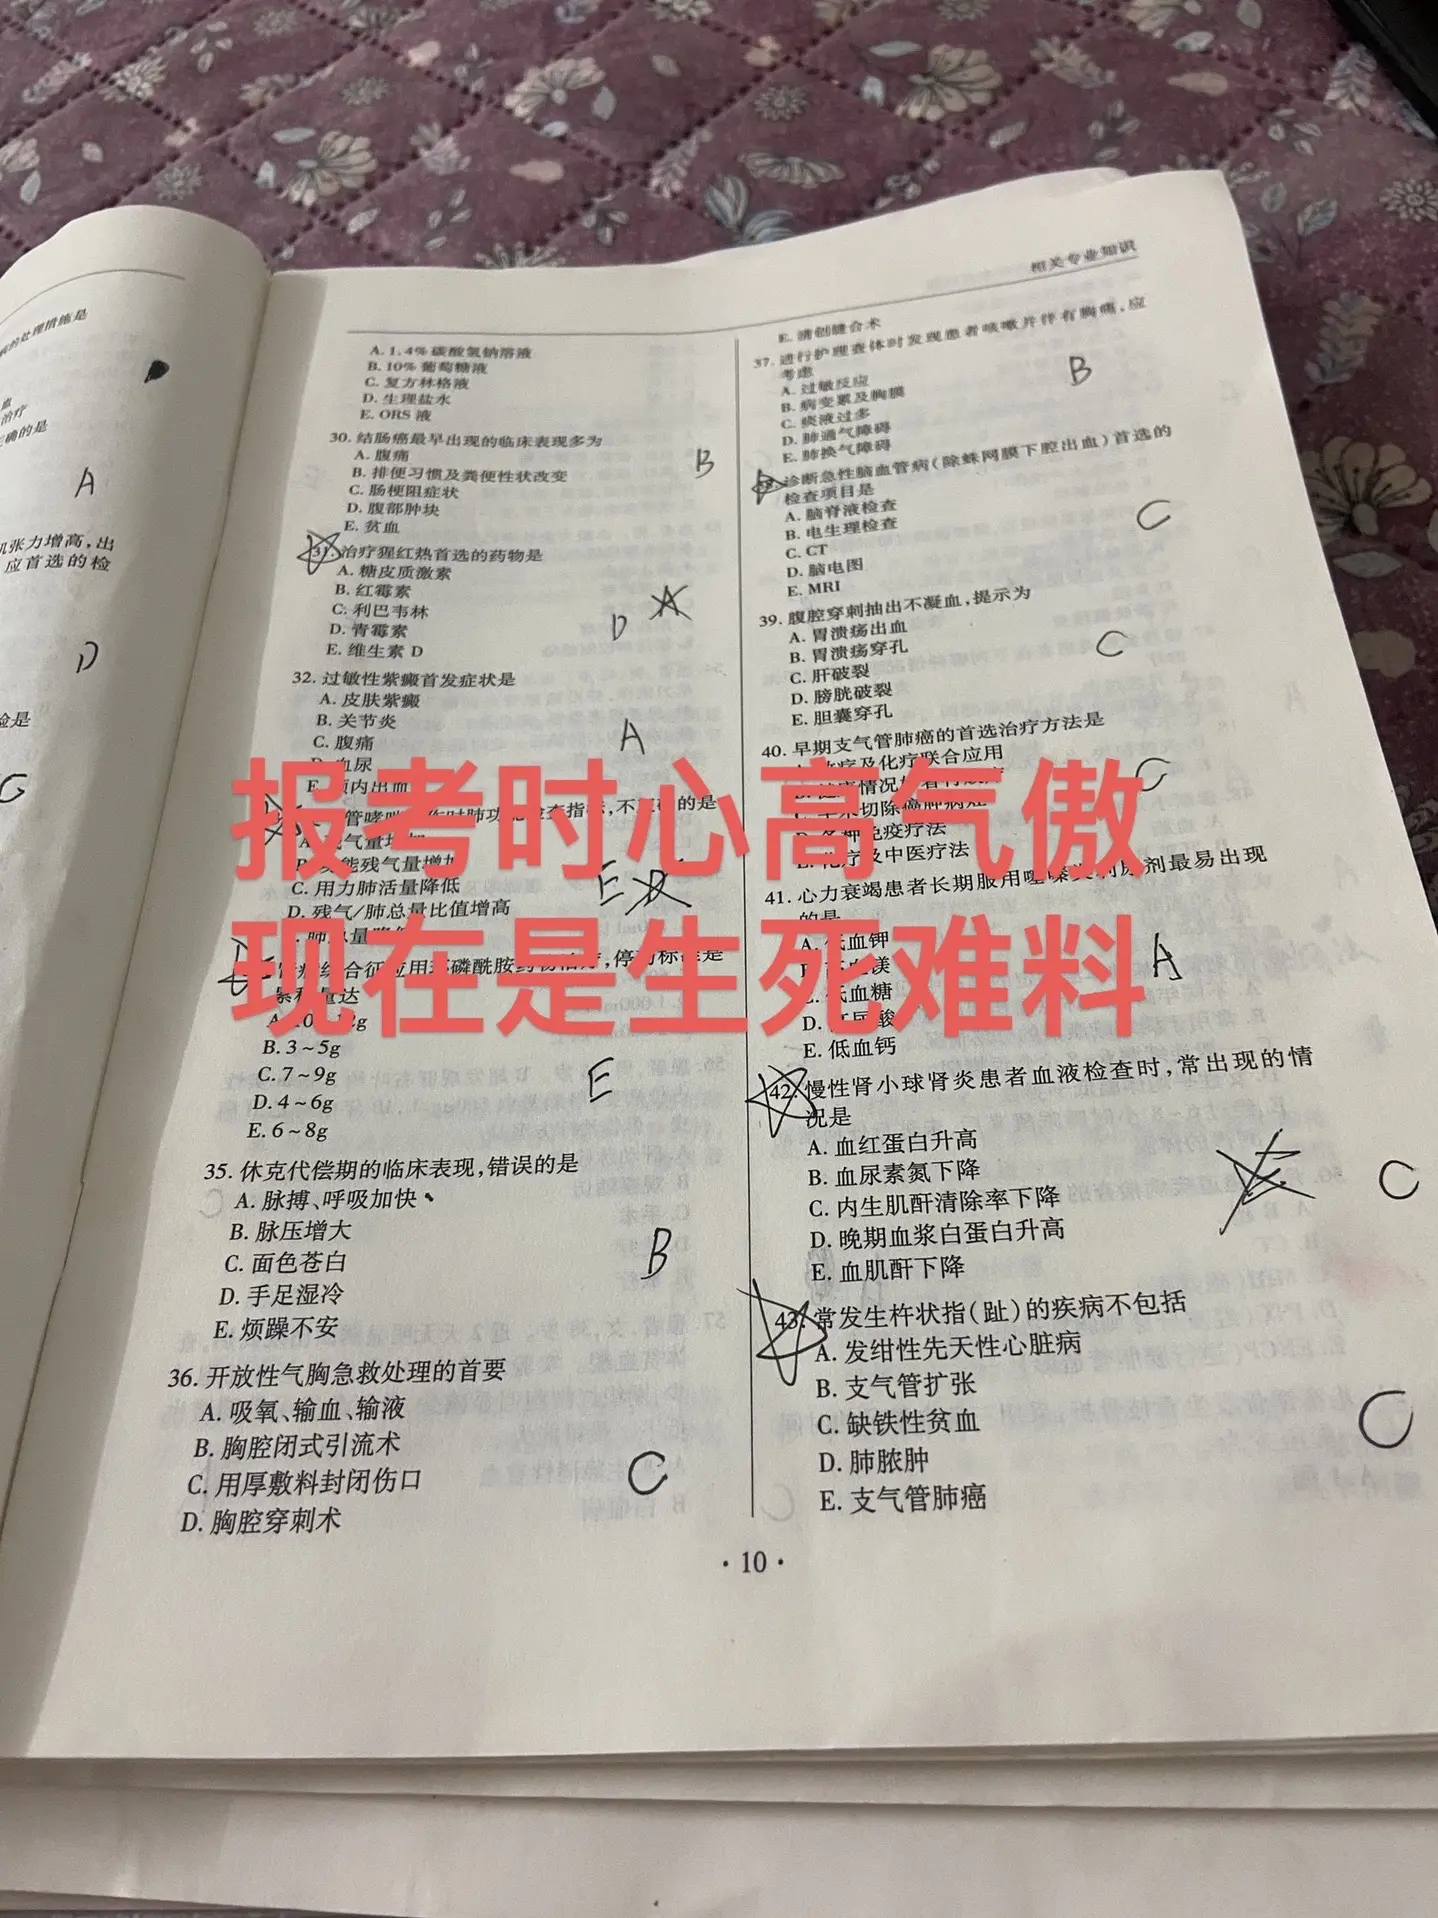 的处理措施是
血
治疗
正确的是
A
肌张力增高,出
应首选的检
D
验是
相关专业知识
A. 1.4%碳酸氢钠溶液
B. 10%葡萄糖液
C. 复方林格液
D. 生理盐水
E. ORS 液
30. 结肠癌最早出现的临床表现多为
A. 腹痛
B. 排便习惯及粪便性状改变
B
C. 肠梗阻症状
D. 腹部肿块
E. 贫血
31. 治疗猩红热首选的药物是
A. 糖皮质激素
B. 红霉素
A
C. 利巴韦林
D. 青霉素
D
E. 维生素 D
32. 过敏性紫癜首发症状是
A. 皮肤紫癜
B. 关节炎
C. 腹痛
A
血尿
颅内出血
管哮喘
肺功
检查指
,不
的是
气量增
能残气量增加
C. 用力肺活量降低
E D
D. 残气/肺总量比值增高
综合征应用环磷酰胺药物治疗,停药标准是
量达
B. 3~5g
C. 7~9g
E
D. 4~6g
E. 6~8g
35. 休克代偿期的临床表现,错误的是
A. 脉搏、呼吸加快
B. 脉压增大
C. 面色苍白
B
D. 手足湿冷
E. 烦躁不安
36. 开放性气胸急救处理的首要
A. 吸氧、输血、输液
B. 胸腔闭式引流术
C. 用厚敷料封闭伤口
C
D. 胸腔穿刺术
E. 清创缝合术
37. 进行护理查体时发现患者咳嗽并伴有胸痛,应
考虑
A. 过敏反应
B
B. 病变累及胸膜
C. 痰液过多
D. 肺通气障碍
E. 肺换气障碍
诊断急性脑血管病(除蛛网膜下腔出血)首选的
检查项目是
A. 脑脊液检查
B. 电生理检查
C
C. CT
D. 脑电图
E. MRI
39. 腹腔穿刺抽出不凝血,提示为
A. 胃溃疡出血
B. 胃溃疡穿孔
C
C. 肝破裂
D. 膀胱破裂
E. 胆囊穿孔
40. 早期支气管肺癌的首选治疗方法是
放疗及化疗联合应用
C
早期切除癌肿病灶
各种免疫疗法
化疗及中医疗法
41. 心力衰竭患者长期服用噻嗪类利尿剂最易出现
的是
A. 低血钾
A
镁
低血糖
D. 高尿酸
E. 低血钙
42. 慢性肾小球肾炎患者血液检查时,常出现的情
况是
A. 血红蛋白升高
B. 血尿素氮下降
C
C. 内生肌酐清除率下降
D. 晚期血浆白蛋白升高
E. 血肌酐下降
43. 常发生杵状指(趾)的疾病不包括
A. 发绀性先天性心脏病
B. 支气管扩张
C. 缺铁性贫血
C
D. 肺脓肿
E. 支气管肺癌
· 10 ·
报考时心高气傲
现在是生死难料